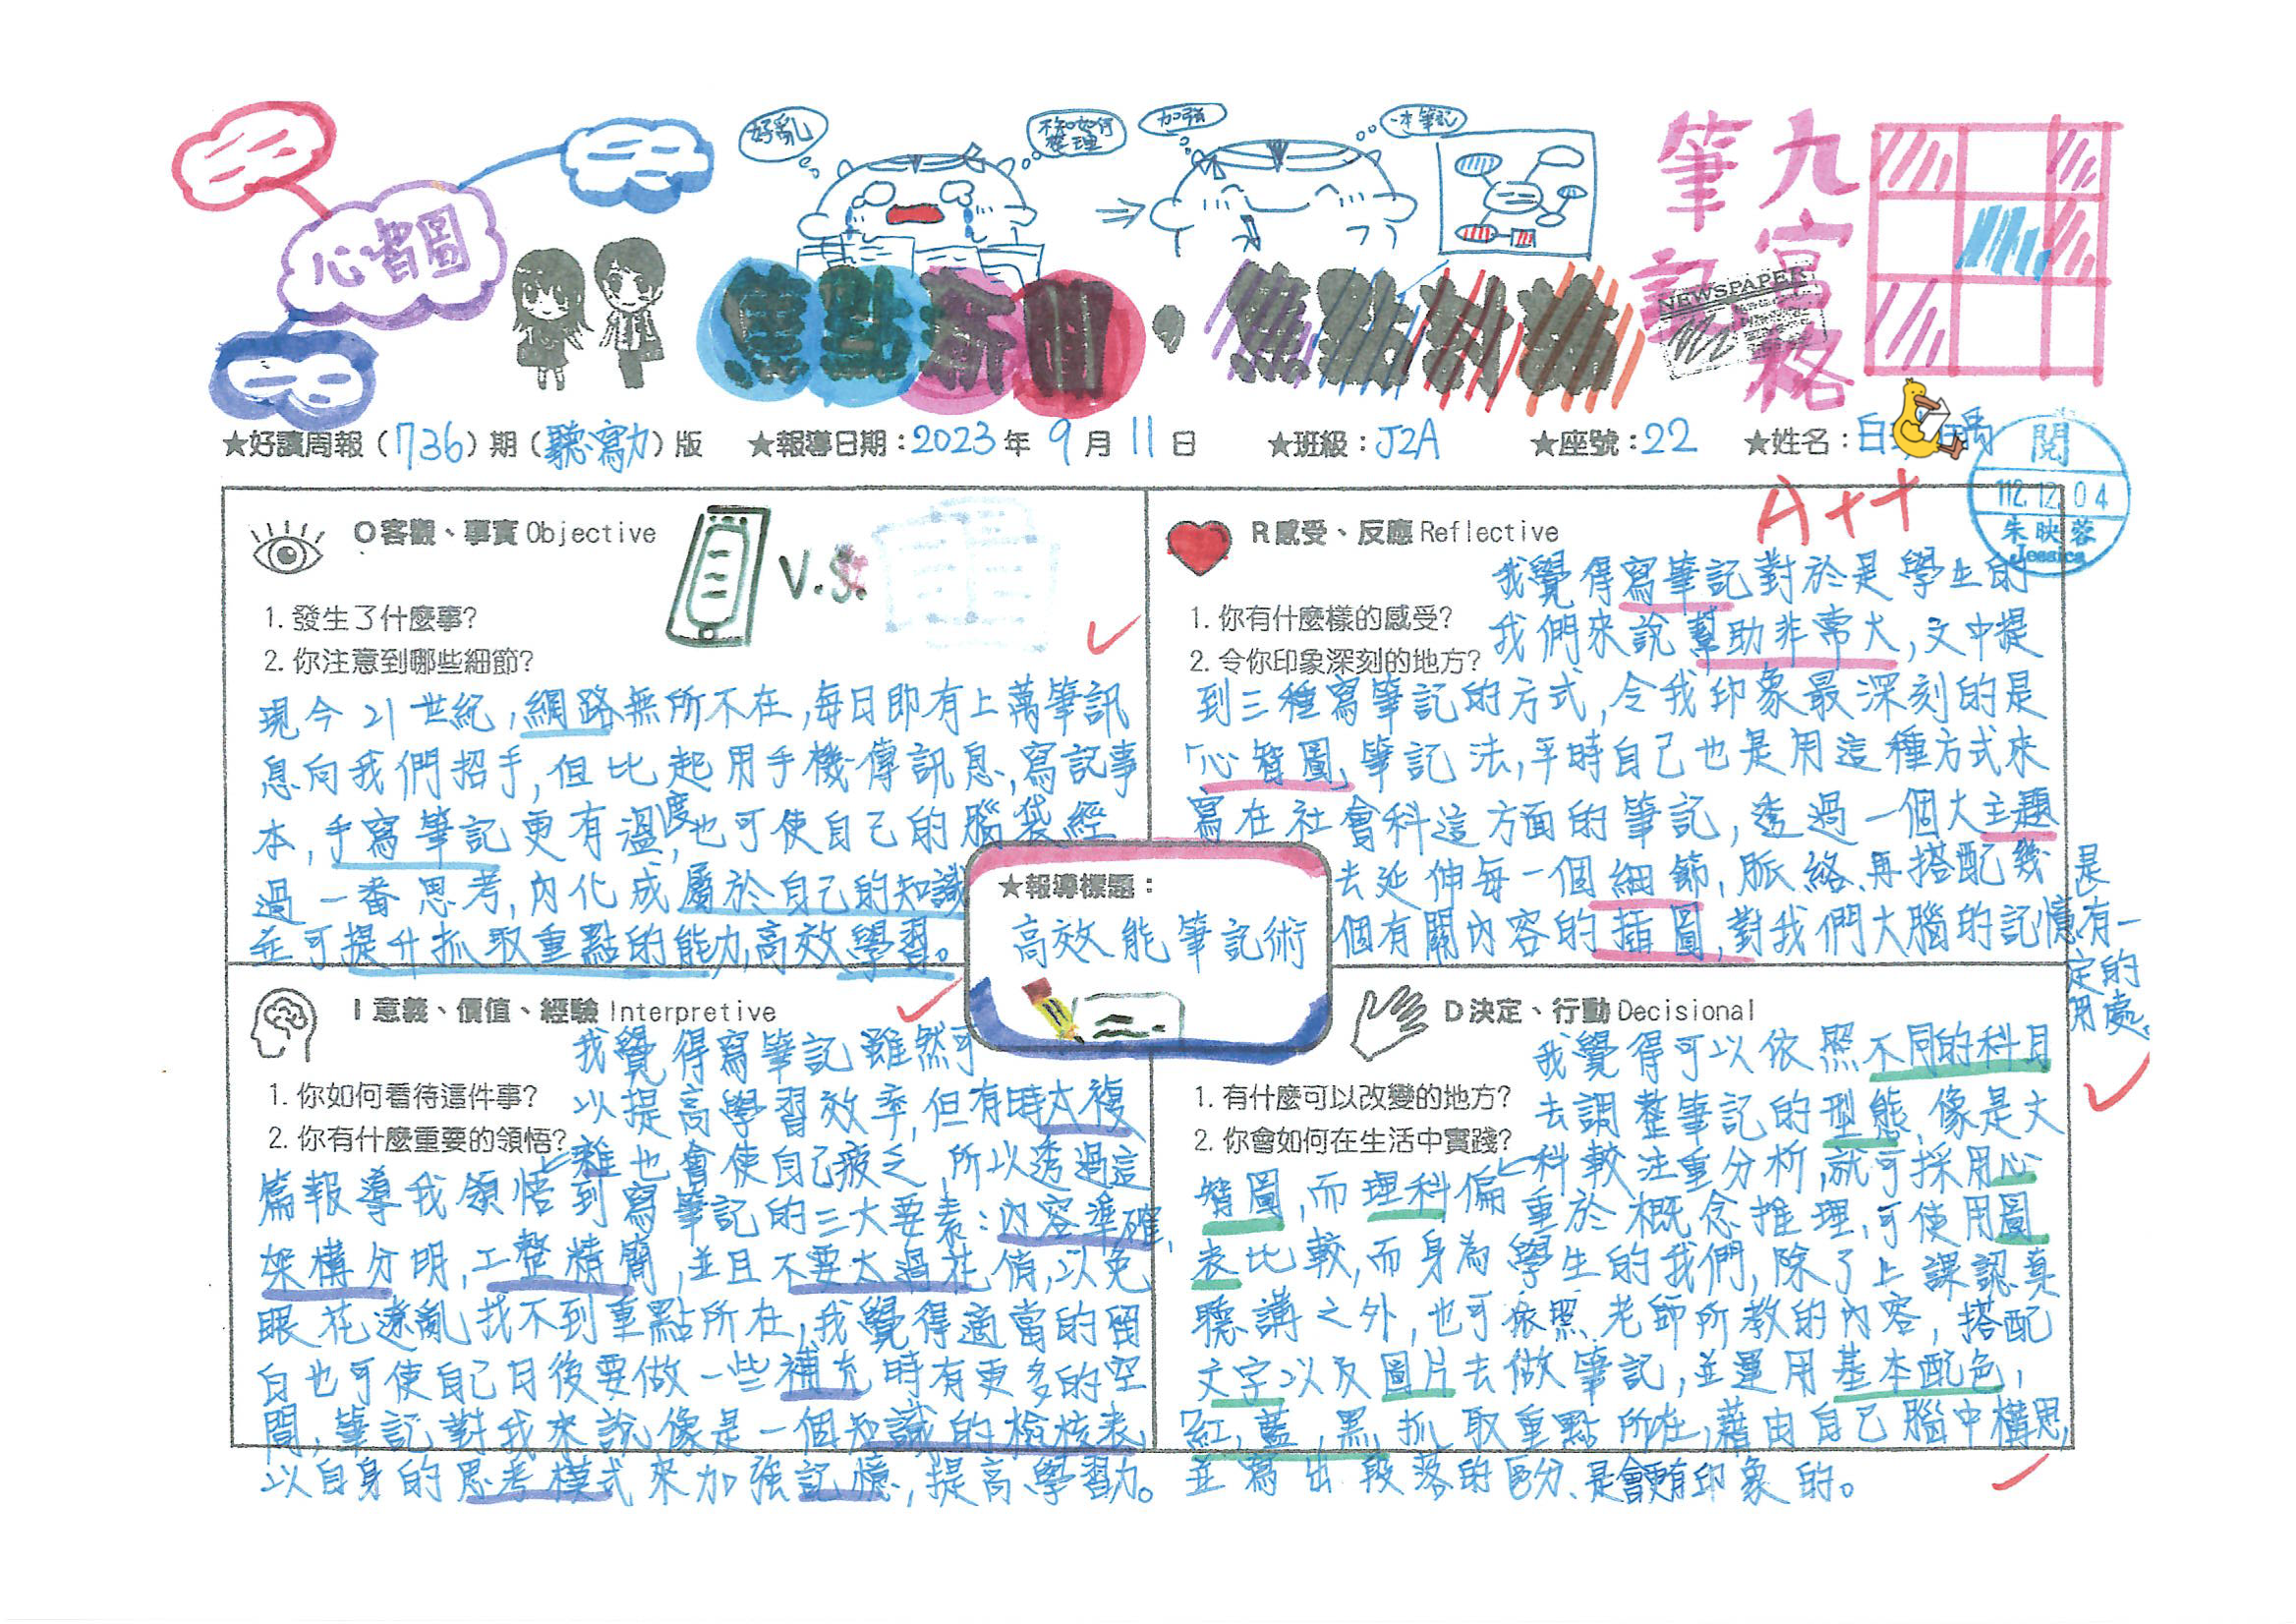 心智圖
好亂
不知如何
整理
加強
一本筆記
九宮格
筆記
焦點新聞，焦點討論
NEWSPAPER
★好讀周報（736）期（聽寫力）版 ★報導日期：2023年9月11日 ★班級：J2A ★座號：22 ★姓名：白
閱
112.12.04
朱映蓉
Jessica
A++
O客觀、事實 Objective
V.S.
1. 發生了什麼事?
2. 你注意到哪些細節?
現今21世紀，網路無所不在，每日即有上萬筆訊
息向我們招手，但比起用手機傳訊息，寫記事
本，手寫筆記更有溫度，也可使自己的腦袋經
過一番思考，內化成屬於自己的知識
並可提升抓取重點的能力，高效學習。
R感受、反應 Reflective
1. 你有什麼樣的感受?
2. 令你印象深刻的地方?
我覺得寫筆記對於是學生的
我們來說幫助非常大，文中提
到三種寫筆記的方式，令我印象最深刻的是
「心智圖」筆記法，平時自己也是用這種方式來
寫在社會科這方面的筆記，透過一個大主題
去延伸每一個細節，脈絡，再搭配幾
個有關內容的插圖，對我們大腦的記憶是有一
定的
用處。
★報導標題：
高效能筆記術
I 意義、價值、經驗 Interpretive
1. 你如何看待這件事?
2. 你有什麼重要的領悟?
我覺得寫筆記雖然可
以提高學習效率，但有時太複
雜也會使自己疲乏，所以透過這
篇報導我領悟到寫筆記的三大要素：內容準確，
架構分明，工整精簡，並且不要太過花俏，以免
眼花遼亂找不到重點所在，我覺得適當的留
白也可使自己日後要做一些補充時有更多的空
間，筆記對我來說像是一個知識的檢核表，
以自身的思考模式來加強記憶，提高學習力。
D決定、行動 Decisional
1. 有什麼可以改變的地方?
2. 你會如何在生活中實踐?
我覺得可以依照不同的科目
去調整筆記的型態，像是文
科較注重分析，就可採用心
智圖，而理科偏重於概念推理，可使用圖
表比較，而身為學生的我們，除了上課認真
聽講之外，也可依照老師所教的內容，搭配
文字以及圖片去做筆記，並運用基本配色，
「紅，藍，黑」抓取重點所在，藉由自己腦中構思，
並寫出段落的區分，是會更有印象的。